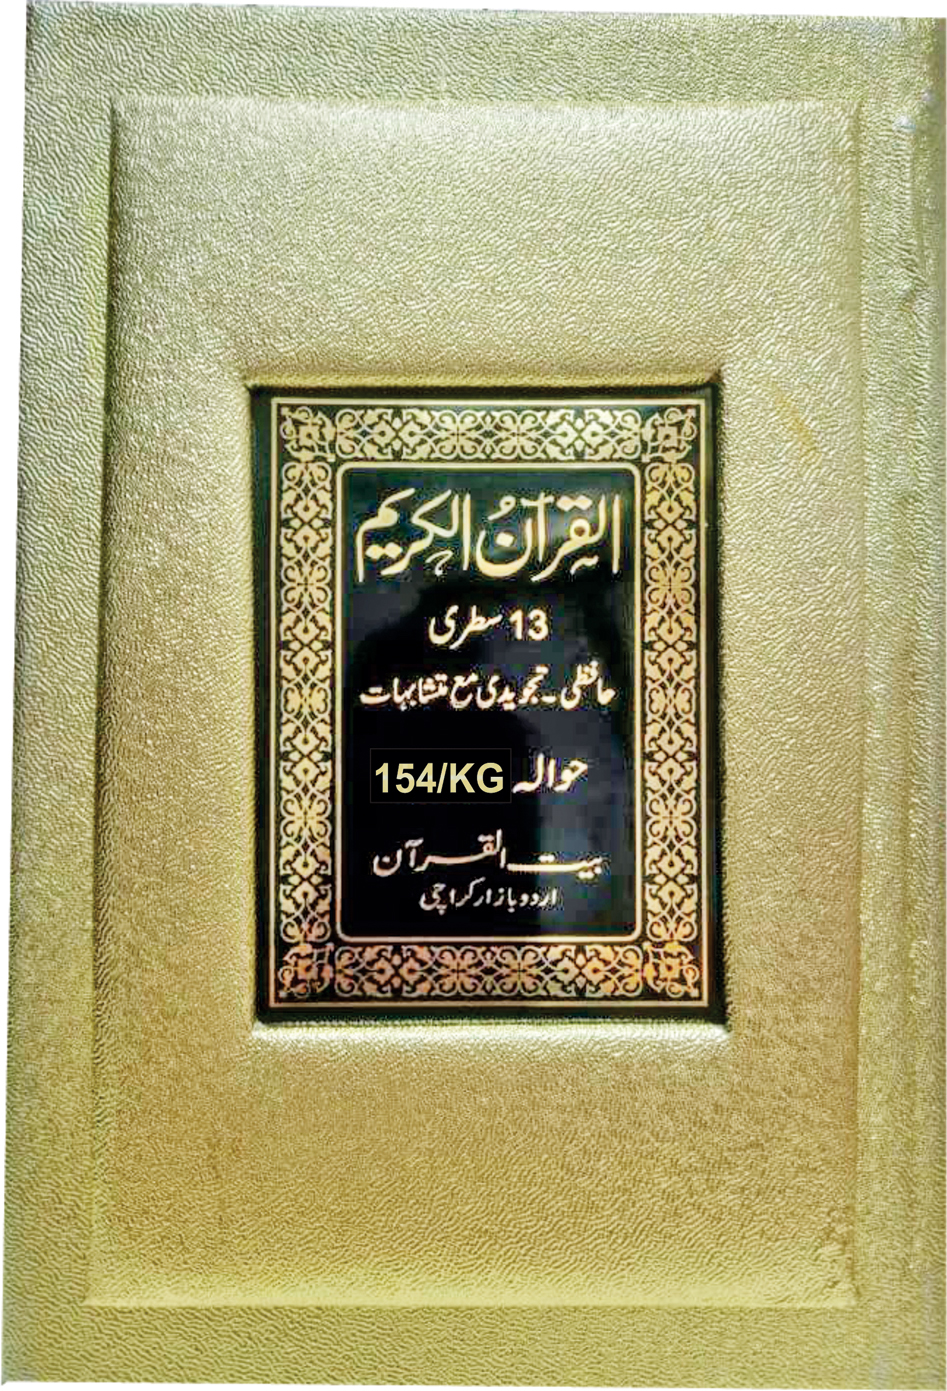 القرآنُ الکریم
13 سطری
حافظی۔ تجویدی مع متشابہات
حوالہ 154/KG
بیت القرآن
اردو بازار کراچی